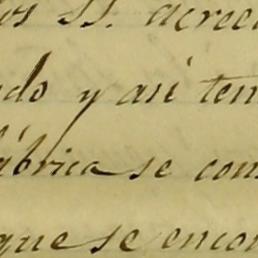 los SS. acree
ado y así ten
fábrica se con
que se encon